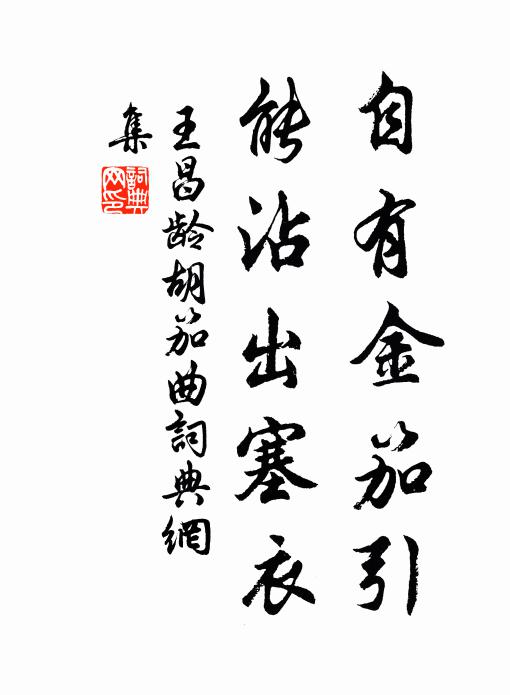 自有金笳引
能沾出塞衣
王昌龄胡笳曲詞典網
集
詞典
网印